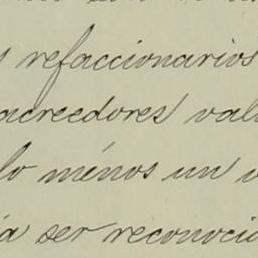 s refaccionarios
acreedores val
lo ménos un v
a ser reconoci